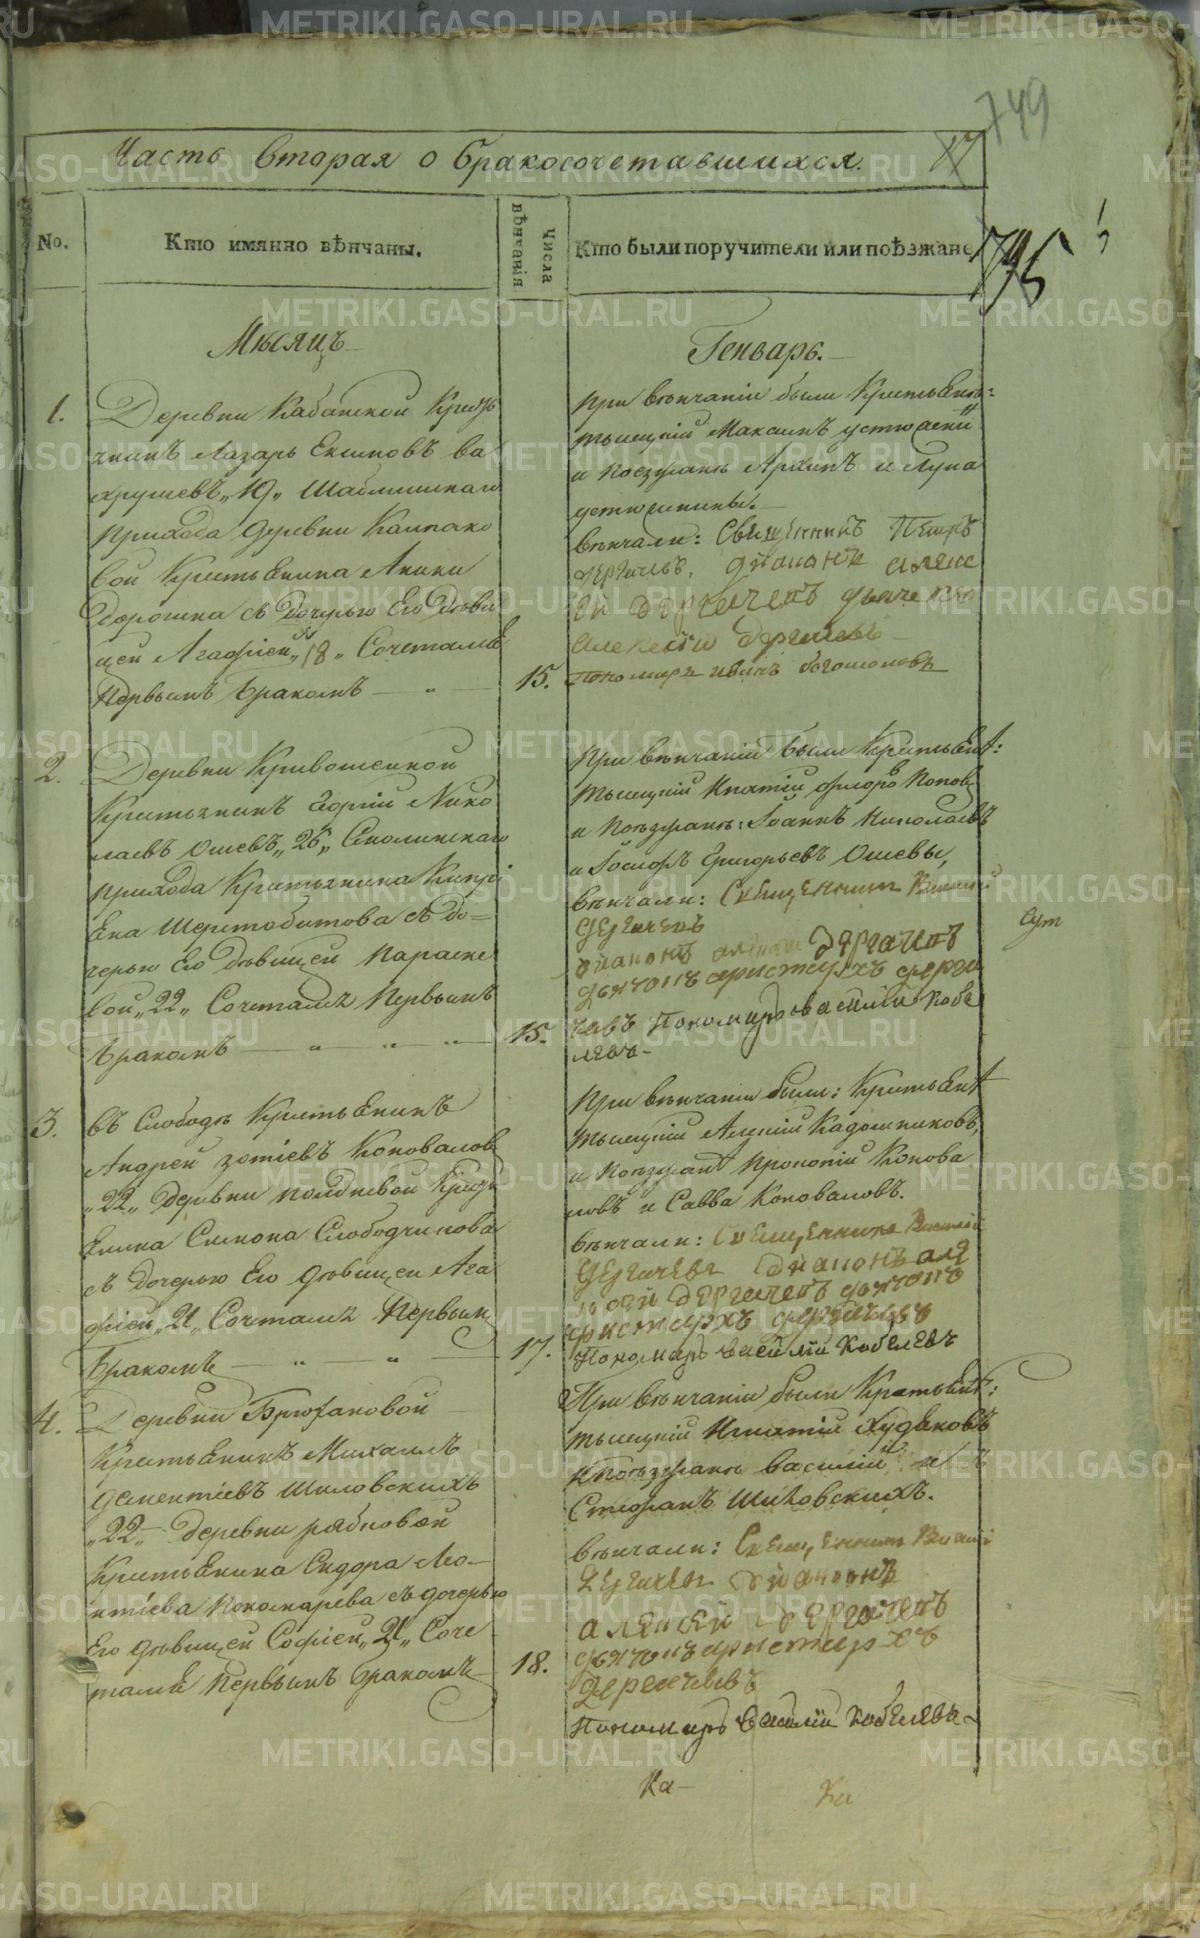 749
Часть вторая о бракосочетавшихся.
17
No.
Кто имянно вѣнчаны.
Числа вѣнчанія
Кто были поручители или поѣзжане
795
Мѣсяцъ
Генварь.
1.
Деревни Кабанской Кресть
янинъ Лазарь Екимовъ Ва
хрушевъ „19„ Шаблишскаго
прихода деревни
вой Крестьянина Аники
съ Дочерью Его Дѣви
цей Агафіей „18„ Сочетались
Первымъ бракомъ
15.
При вѣнчаніи были Крестьяне:
тысецкій Максимъ
и Поезжана Архипъ и Лука
вѣнчали: Священникъ Петръ
Дергачевъ, Діаконъ Алек
ѣй Дергачевъ
Алексѣй Дергачевъ
Пономарь Иванъ Богомоловъ
2.
Деревни Кривошеиной
Крестьянинъ Георгій Нико
лаевъ Ошевъ „26„ Смолинскаго
прихода Крестьянина Кипрі
яна Шерстобитова съ до=
черью Его дѣвицей Параске
вой „22„ Сочетались Первымъ
бракомъ
15.
При вѣнчаніи были Крестьяне:
тысецкій Игнатій Поповъ
и Поѣзжана: Іоаннъ Николаевъ
и Іосифъ Григорьевъ Ошевы,
вѣнчали: Священникъ Василій
Дергачевъ
Діаконъ Алексѣй Дергачевъ
дьячокъ Аристархъ Дерга
чевъ Пономарь Василій Кобе
левъ-
3.
въ Слободѣ Крестьянинъ
Андрей Зотіевъ Коноваловъ
„22„ Деревни Полдневой Кресть
янина Симона Слободчикова
съ Дочерью Его Дѣвицей Ага
фіей „21„ Сочетались Первымъ
бракомъ
17.
При вѣнчаніи были: Крестьяне
тысецкій Алексій Кадошниковъ,
и Поѣзжана Прокопій Конова
ловъ и Савва Коноваловъ.
вѣнчали: Священникъ Василій
Дергачевъ Діаконъ Але
ксѣй Дергачевъ дьячокъ
Аристархъ Дергачевъ
Пономарь Василій Кобелевъ
4.
Деревни Брюхановой
Крестьянинъ Михаилъ
Дементіевъ Шиловскихъ
„22„ Деревни Рябковой
Крестьянина Сидора Лео-
нтіева Пономарева съ дочерью
Его дѣвицей Софіей „21„ Соче
тались Первымъ бракомъ
18.
При вѣнчаніи были Крестьяне:
тысецкій Игнатій Худяковъ
и Поѣзжана Василій и
Стефанъ Шиловскихъ.
вѣнчали: Священникъ Василій
Дергачевъ Діаконъ
Алексѣй Дергачевъ
дьячокъ Аристархъ
Дергачевъ
Пономарь Василій Кобелевъ
Ка-
Ка
METRIKI.GASO-URAL.RU